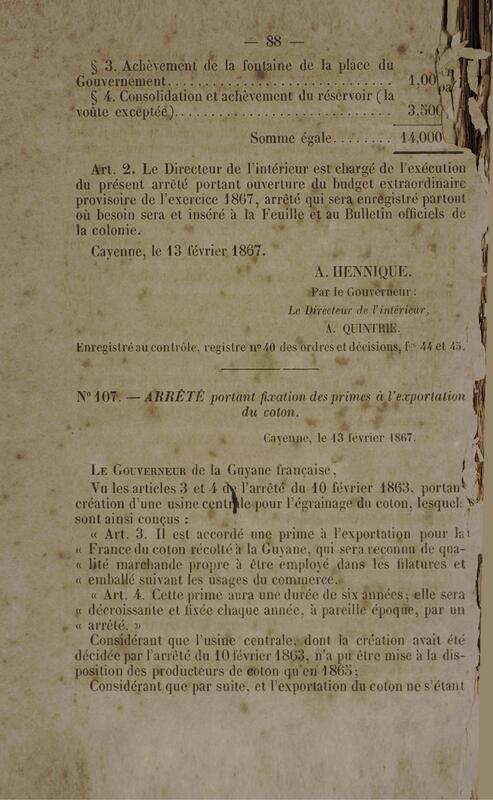 — 88 —
§ 3. Achèvement de la fontaine de la place du
Gouvernement............................... 1,00
§ 4. Consolidation et achèvement du réservoir (la
voûte exceptée).............................. 3,500
Somme égale........ 14,000
Art. 2. Le Directeur de l'intérieur est chargé de l'exécution
du présent arrêté portant ouverture du budget extraordinaire
provisoire de l'exercice 1867, arrêté qui sera enregistré partout
où besoin sera et inséré à la Feuille et au Bulletin officiels de
la colonie.
Cayenne, le 13 février 1867.
A. HENNIQUE.
Par le Gouverneur :
Le Directeur de l'intérieur,
A. QUINTRIE.
Enregistré au contrôle, registre n° 40 des ordres et décisions, fos 44 et 45.
N° 107. — ARRÊTÉ portant fixation des primes à l'exportation
du coton.
Cayenne, le 13 février 1867.
LE GOUVERNEUR de la Guyane française,
Vu les articles 3 et 4 de l'arrêté du 10 février 1863, portant
création d'une usine centrale pour l'égrainage du coton, lesquels
sont ainsi conçus :
« Art. 3. Il est accordé une prime à l'exportation pour la
« France du coton récolté à la Guyane, qui sera reconnu de qua-
« lité marchande propre à être employé dans les filatures et
« emballé suivant les usages du commerce.
« Art. 4. Cette prime aura une durée de six années; elle sera
« décroissante et fixée chaque année, à pareille époque, par un
« arrêté. »
Considérant que l'usine centrale, dont la création avait été
décidée par l'arrêté du 10 février 1863, n'a pu être mise à la dis-
position des producteurs de coton qu'en 1865;
Considérant que par suite, et l'exportation du coton ne s'étant